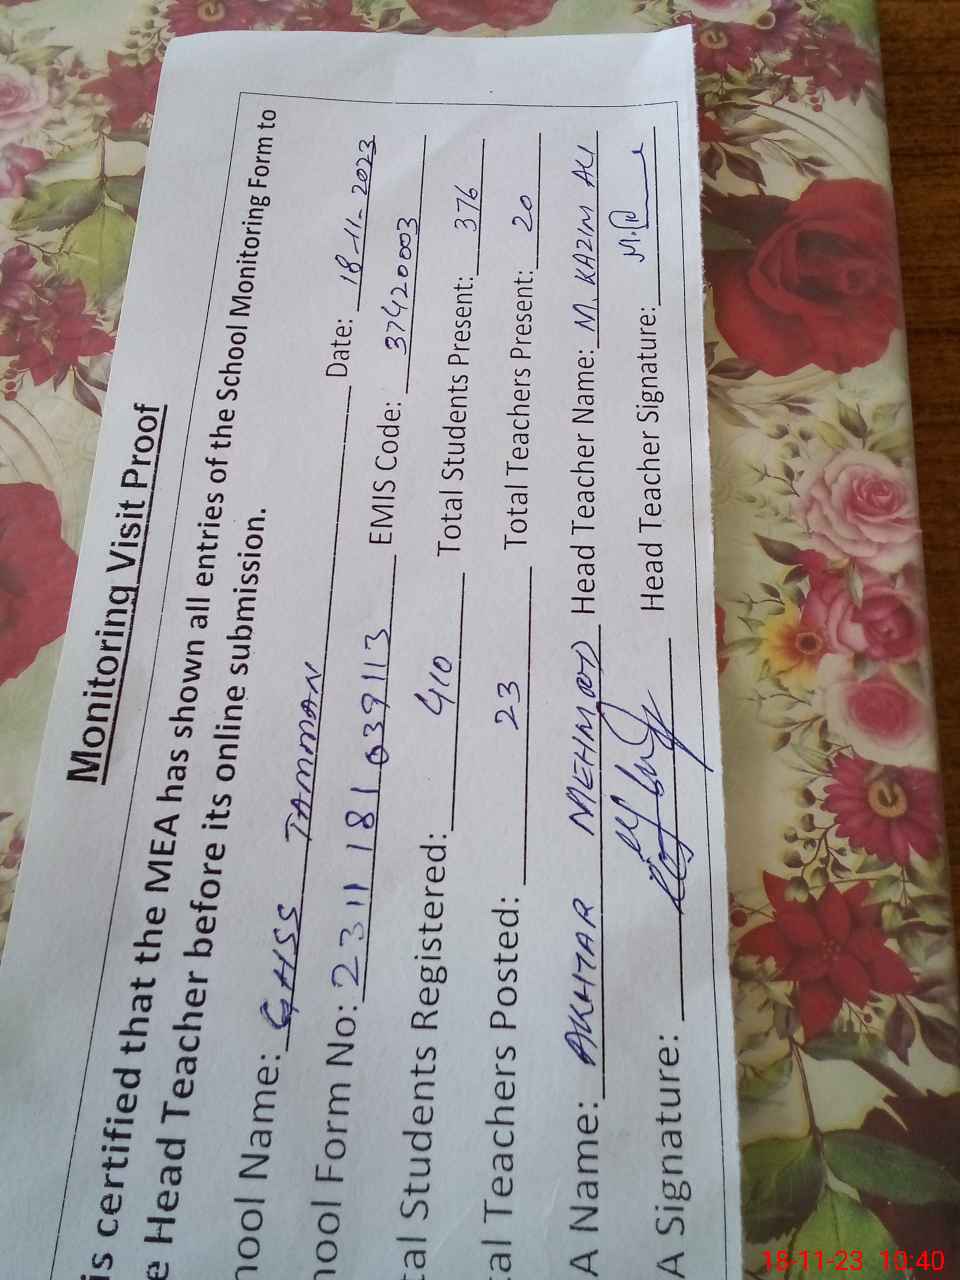 Monitoring Visit Proof
is certified that the MEA has shown all entries of the School Monitoring Form to
e Head Teacher before its online submission.
hool Name: GHSS TAMMAN Date: 18-11-2023
hool Form No: 2311181039113 EMIS Code: 37420003
tal Students Registered: 410 Total Students Present: 376
tal Teachers Posted: 23 Total Teachers Present: 20
A Name: AKHTAR MEHMOOD Head Teacher Name: M. KAZIM ALI
A Signature: Head Teacher Signature:
18-11-23 10:40